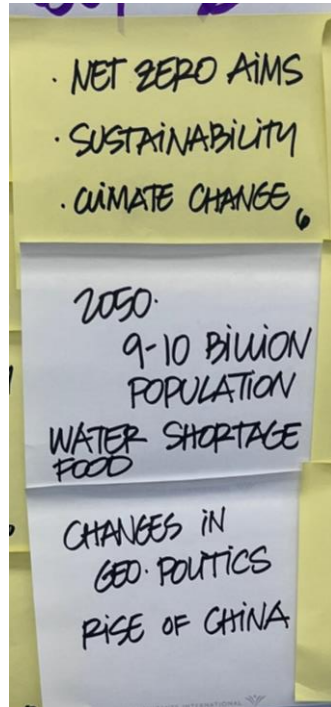 · NET ZERO AIMS
· SUSTAINABILITY
· CLIMATE CHANGE 6
2050.
9-10 BILLION
POPULATION
WATER SHORTAGE
FOOD
CHANGES IN
GEO·POLITICS
RISE OF CHINA
INTERNATIONAL